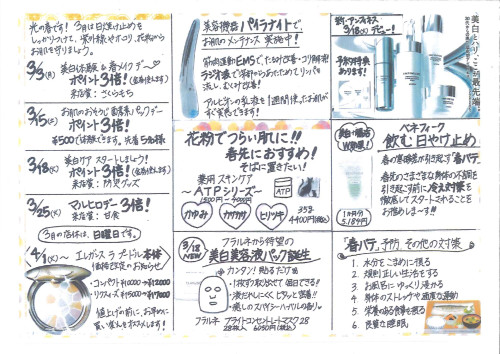 光の春です! 3月は日焼け止めを
しっかりつけて、紫外線やホコリ、花粉から
お肌を守りましょう。
3/3(月) 美白体験&春メイクデー
ポイント3倍!
来店賞:さくらもち
3/15(土) お肌のおそうじ
ポイント3倍!
¥500で体験できます。先着5名様
3/18(火) 美白ケア スタートしましょう!
ポイント3倍!
来店賞:防災グッズ
3/25(火) マルヒロデー 3倍!
来店賞:甘食
3月の店休は、日曜日です。
4/1(火)~ エレガンス ラ プードル本体
価格改定のお知らせ
コンパクト ¥10000→¥12000
リクフィーズ ¥15000→¥17000
値上げの前に、お早めに
買い替えをおススメします!
美容機器 パイラナイトで、
お肌のメンテナンス 実施中!
筋肉運動EMSで、たるみ改善・コリ解消!
ラジオ波で芯から
流し、むくみ改善!
アルビオンの乳液を1週間使ったお肌が
すぐ実感できます!
花粉でつらい肌に!!
春先におすすめ!
そばに置きたい!
薬用 スキンケア
~ATPシリーズ~
ATP
かゆみ
カサカサ
ヒリつき
35g
4400円(税込)
3/18 NEW
フラルネから待望の
美白美容液パック誕生
カンタン! 貼るだけケア
1枚ずつ取り出せて毎日できる!
液だれしにくくピタッと密着!!
癒しのスパイシーハーバルの香り。
フルルネ ブライトコンセントレートマスク28
28枚入 6050円(税込)
3/18(火)デビュー!
予約特典
あります!
美白とハリ、三到最先端
ベネフィーク
飲む日やけ止め
1ヶ月分
5,189円
春の寒暖差が引き起こす「春バテ」
春先のさまざまな身体の不調を
引き起こす前に冷え対策を
徹底してスタートされることを
お薦めします~!!
「春バテ」予防 その他の対策
1. 水分をこまめに摂る
2. 規則正しい生活をする
3. お風呂にゆっくり浸かる
4. 身体のストレッチや適度な運動
5. 栄養のある食事を摂る
6. 良質な睡眠